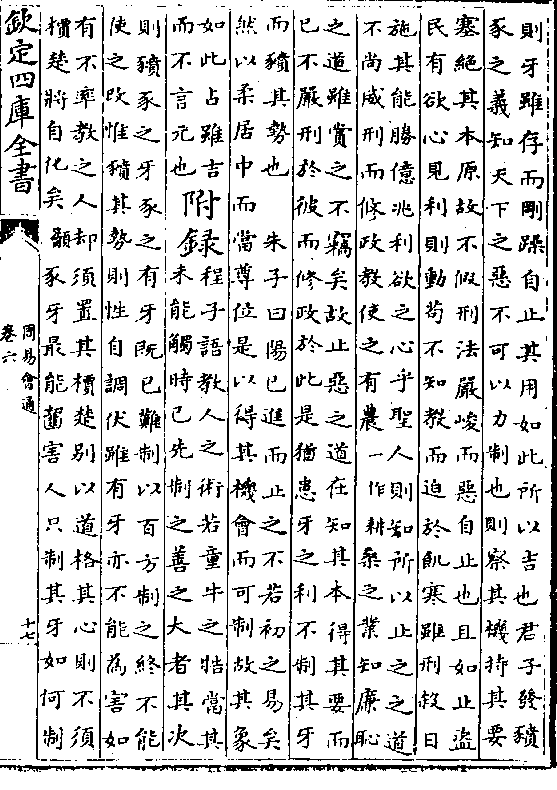 則牙雖存而剛躁自止其用如此所以吉也君子發豶
豕之義知天下之惡不可以力制也則察其機持其要
塞絕其本原故不假刑法嚴峻而惡自止也且如止盜
民有欲心見利則動苟不知教而迫於飢寒雖刑殺日
施其能勝億兆利欲之心乎聖人則知所以止之之道
不尚威刑而修政教使之有農一作耕桑之業知廉恥
之道雖賞之不竊矣故止惡之道在知其本得其要而
已不嚴刑於彼而修政於此是猶患牙之利不制其牙
而豶其勢也 朱子曰陽已進而止之不若初之易矣
然以柔居中而當尊位是以得其機會而可制故其象
如此占雖吉
而不言元也
附錄
程子語教人之術若童牛之牿當其
未能觸時已先制之善之大者其次
則豶豕之牙豕之有牙既已難制以百方制之終不能
使之改惟豶其勢則性自調伏雖有牙亦不能為害如
有不率教之人却須置其檟楚別以道格其心則不須
檟楚將自化矣 顥 豕牙最能齧害人只制其牙如何制
欽定四庫全書
周易會通
卷六
十七